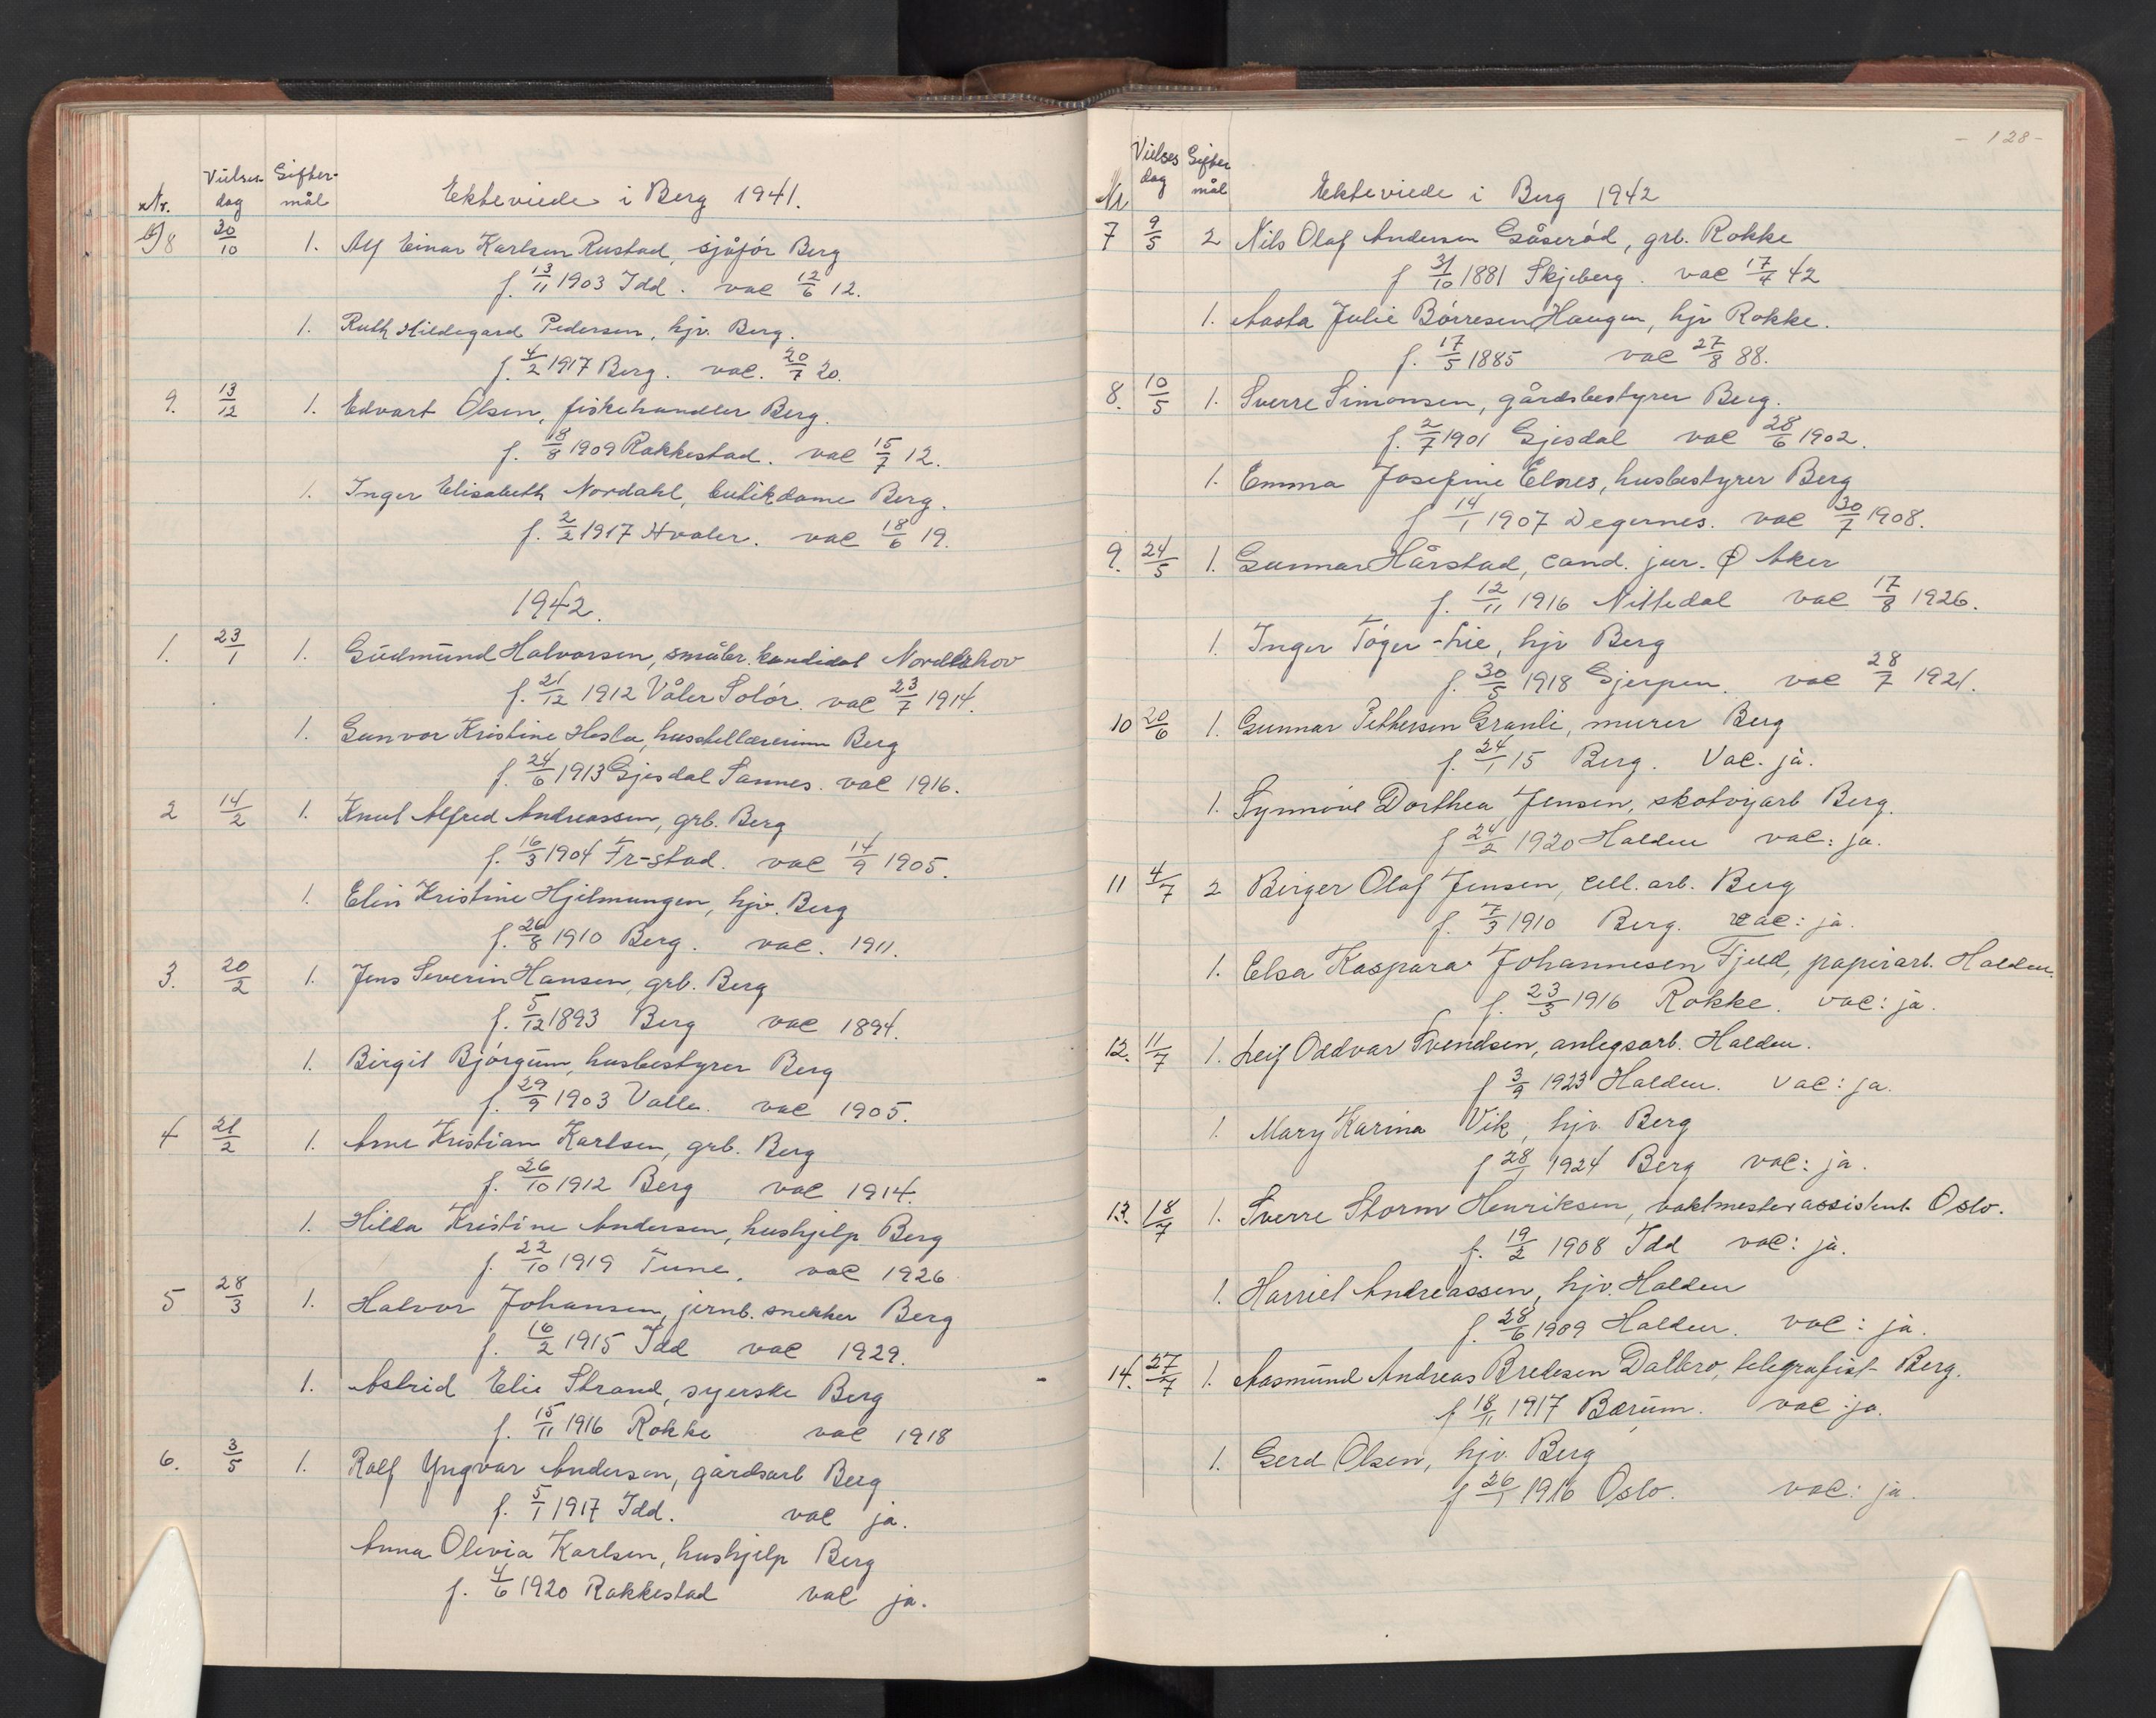 Nr. Vielses dag Gifter-mål Ekteviede i Berg 1941.
8 30/10 1. Alf Einar Karlsen Rustad, sjåfør Berg
f. 13/11 1903 Idd. vac 12/6 12.
1. Ruth Hildegard Pedersen, hjv. Berg.
f. 4/2 1917 Berg. vac. 20/7 20.
9. 13/12 1. Edvart Olsen, fiskehandler Berg.
f. 18/8 1909 Rakkestad. vac 15/7 12.
1. Inger Elisabeth Nordahl, butikdame Berg.
f. 2/2 1917 Hvaler. vac 18/6 19.
1942.
1. 23/1 1. Gudmund Halvorsen, småbr. kandidat
f. 21/12 1912 Våler Solør. vac 23/7 1914.
1. Gunvor Kristine Hesla, husstellærerinne Berg
f. 24/6 1913 Gjesdal Sannes. vac 1916.
2 14/2 1. Knut Alfred Andreassen, grb. Berg
f. 16/3 1904 Fr-stad. vac 14/9 1905.
1. Elin Kristine Hjelmungen, hjv. Berg
f. 26/8 1910 Berg. vac. 1911.
3. 20/2 1. Jens Severin Hansen, grb. Berg
f. 5/12 1893 Berg vac 1894.
1. Birgit Bjørgum, husbestyrer Berg
f. 29/9 1903 Valle. vac 1905.
4 21/2 1. Arne Kristian Karlsen, grb. Berg
f. 26/10 1912 Berg vac 1914.
1. Hilda Kristine Andersen, hushjelp Berg
f. 22/10 1919 Tune. vac 1926
5 28/3 1. Halvor Johansen, jernb. snekker Berg
f. 16/2 1915 Idd vac 1929.
1. Astrid Elie Strand, syerske Berg
f. 15/11 1916 Rokke vac 1918
6. 3/5 1. Rolf Yngvar Andersen, gårdsarb Berg
f. 5/1 1917 Idd. vac ja.
Anna Olivia Karlsen, hushjelp Berg
f. 4/6 1920 Rakkestad vac ja.
- 128 -
Nr Vielses dag Gifter mål Ekteviede i Berg 1942
7 9/5 2 Nils Olaf Andersen Gåserød, grb. Rokke
f 31/10 1881 Skjeberg. vac 17/4 42
1. Aasta Julie Børresen Haugen, hjv Rokke.
f. 17/5 1885 vac 27/8 88.
8. 10/5 1. Sverre Simonsen, gårdsbestyrer Berg.
f. 2/7 1901 Gjesdal vac 28/6 1902.
1. Emma Josefine Elnes, husbestyrer Berg
f 14/1 1907 Degernes. vac 30/7 1908.
9. 24/5 1. Gunnar Hårstad, cand. jur. Ø Aker
f. 12/11 1916 Nittedal vac 17/8 1926.
1. Inger Tøger-Lie, hjv Berg
f. 30/5 1918 Gjerpen. vac 28/7 1921.
10 20/6 1. Gunnar Pettersen Granli, murer Berg
f. 24/1 15 Berg. Vac. ja.
1. Synnøve Dorthea Jensen, skotøyarb Berg.
f 24/2 1920 Halden vac: ja.
11 4/7 2 Birger Olaf Jensen, cell. arb. Berg
f. 7/3 1910 Berg. vac: ja.
1. Elsa Kaspara Johannesen Fjeld, papirarb. Halden.
f. 23/3 1916 Rokke. vac: ja.
12. 11/7 1. Leif Oddvar Svendsen, anlegsarb. Halden.
f 3/9 1923 Halden. vac: ja.
1. Mary Karina Vik, hjv. Berg
f 28/1 1924 Berg vac: ja.
13. 18/7 1. Sverre Storm Henriksen, vaktmesterassistent Oslo.
f. 19/2 1908 Idd vac: ja.
1. Harriet Andreassen, hjv. Halden
f. 28/6 1909 Halden. vac: ja.
14. 27/7 1. Aasmund Andreas Bredesen Dalbro, telegrafist Berg.
f 18/11 1917 Bærum. vac: ja.
1. Gerd Olsen, hjv. Berg
f 26/1 1916 Oslo. vac: ja.